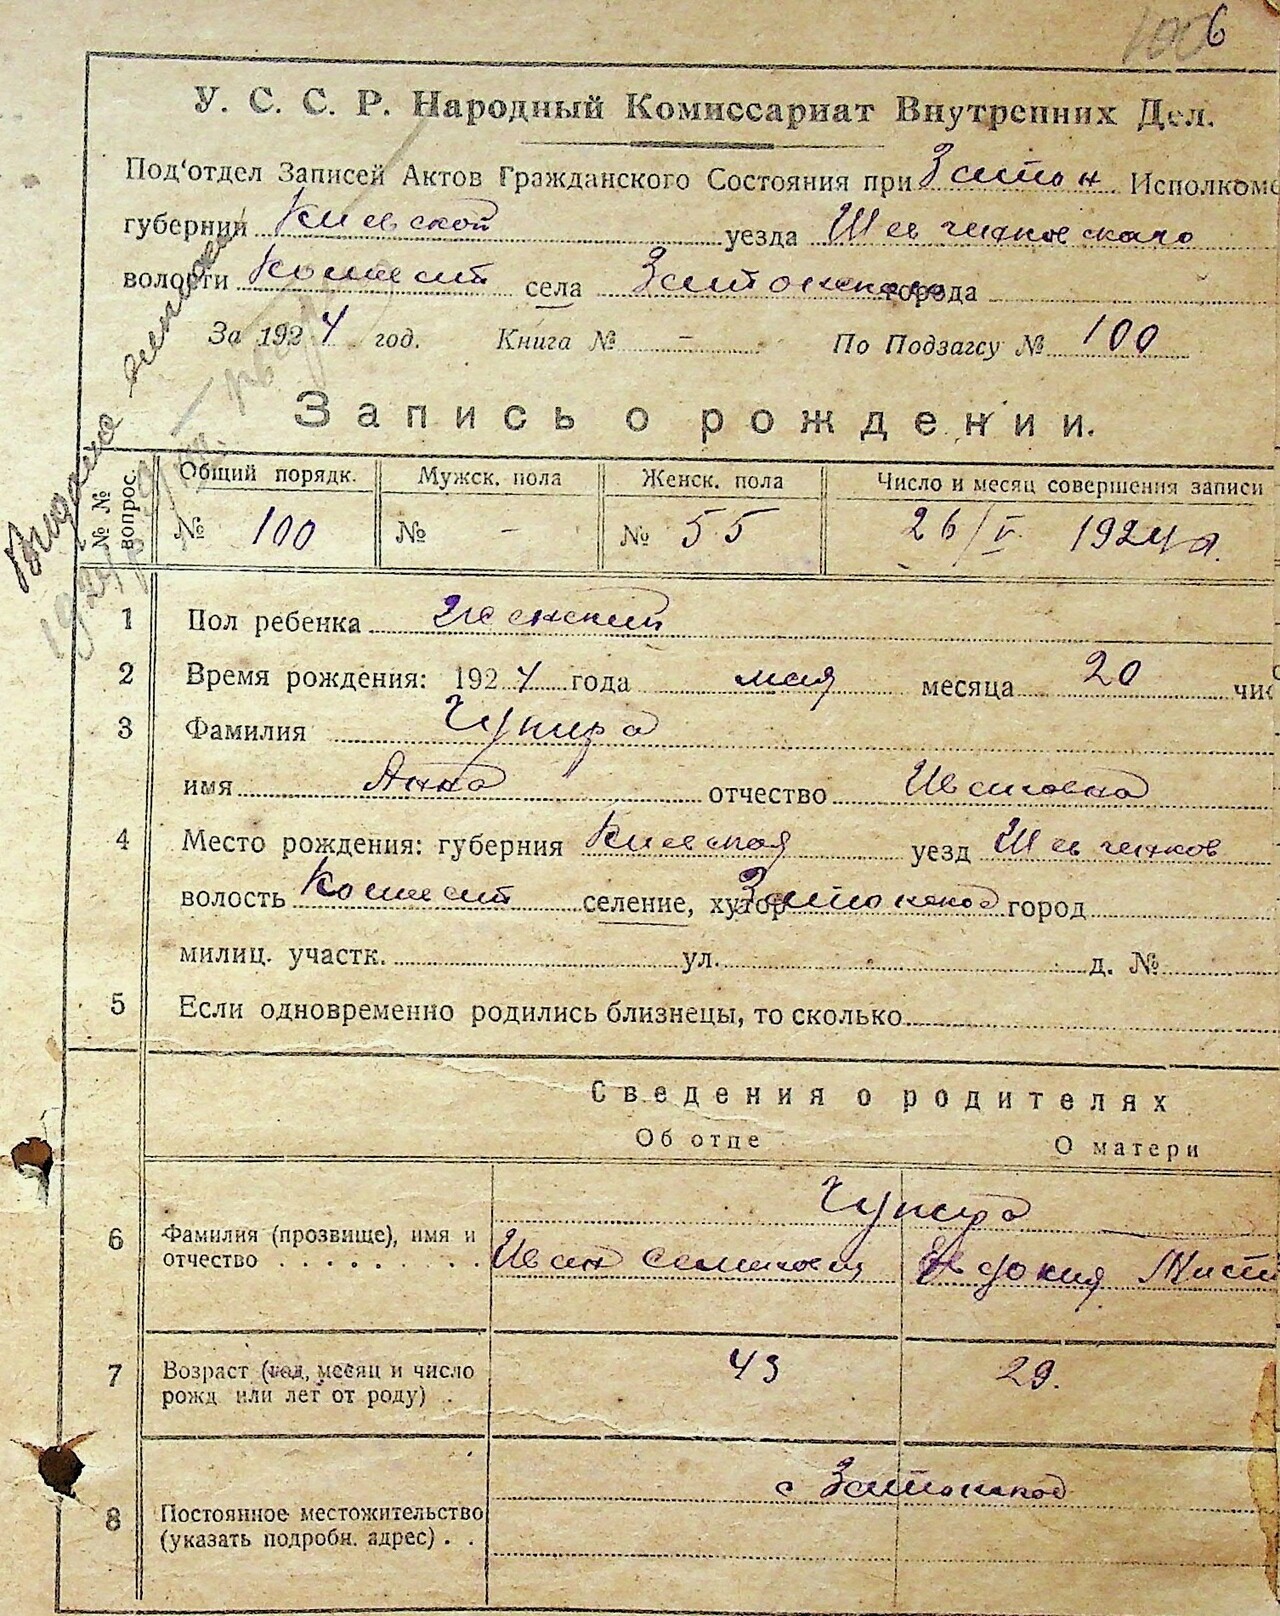 1006
У. С. С. Р. Народный Комиссариат Внутренних Дел.
Под'отдел Записей Актов Гражданского Состояния при Затон Исполкоме
губернии Киевской уезда Шевченковскаго
волости села города
За 1924 год. Книга № – По Подзагсу № 100
Запись о рождении.
№ № вопрос. Общий порядк. Мужск. пола Женск. пола Число и месяц совершения записи
№ 100 № – № 55 26/V 1924 г.
1 Пол ребенка Женский
2 Время рождения: 1924 года мая месяца 20 чис
3 Фамилия Чупира
имя Анна отчество Ивановна
4 Место рождения: губерния Киевская уезд Шевченков
волость селение, хутор город
милиц. участк. ул. д. №
5 Если одновременно родились близнецы, то сколько
Сведения о родителях
Об отце О матери
Чупира
6 Фамилия (прозвище), имя и
отчество Иван Евдокия
7 Возраст (год, месяц и число 43 29.
рожд или лет от роду)
с
8 Постоянное местожительство
(указать подробн. адрес)